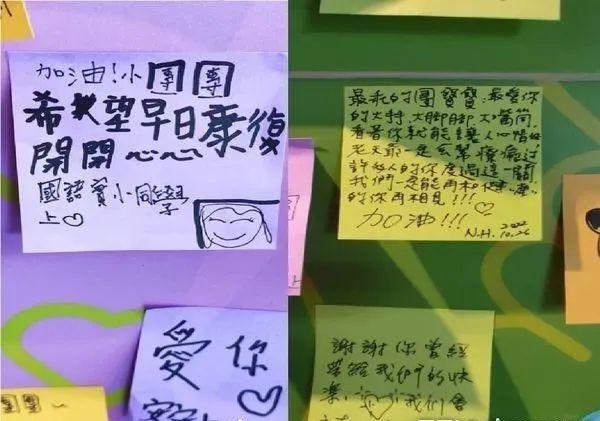 加油!小團團
希望早日康復
開開心心
國語實小同學
上♡
愛你
♡
團團~
最乖的團寶寶,最愛你
的大特,大腳腳,大嘴筒,
看著你就能讓人心情好
老天爺一定會幫療癒過
許多人的你度過這一關
我們一定能再和健康
的你再相見!!!♡
加油!!!
N.H. 2022 10.26
謝謝你曾經
帶給我們的快
樂,我們會